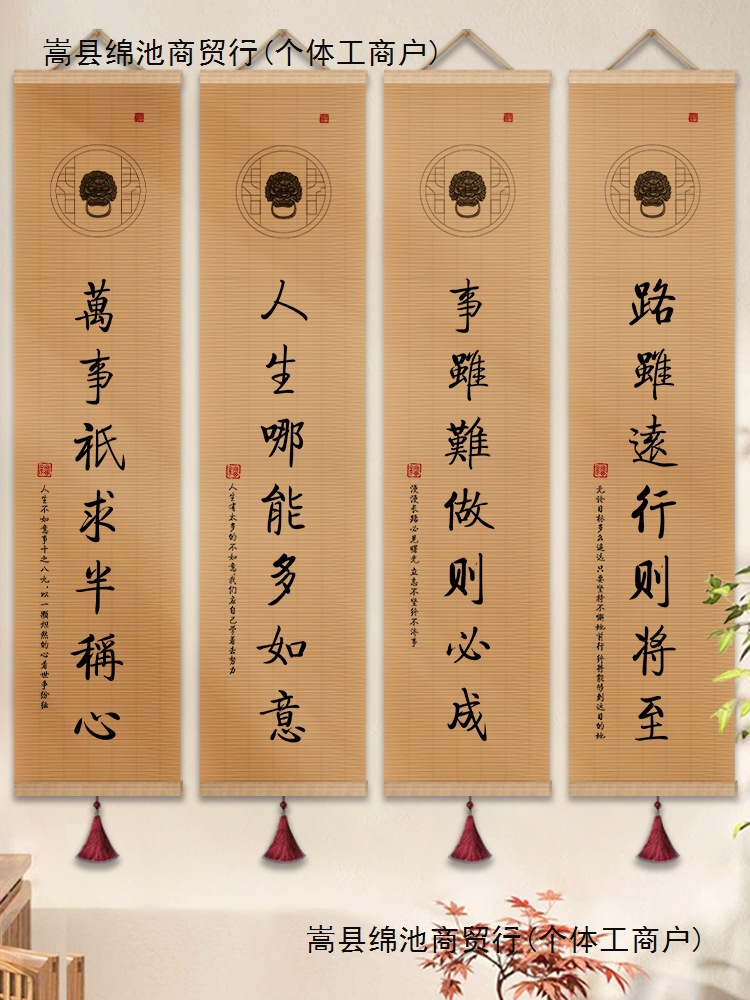 嵩县绵池商贸行(个体工商户)
路雖遠行则将至
无论目标多么遥远 只要坚持不懈地前行 终将能够到达目的地
事雖難做则必成
漫漫长路必见曙光 立志不坚终不济事
人生哪能多如意
人生有太多的不如意,我们应自己学着去努力
萬事祇求半稱心
人生不如意事十之八九,以一颗炽热的心看世事纷纭
嵩县绵池商贸行(个体工商户)